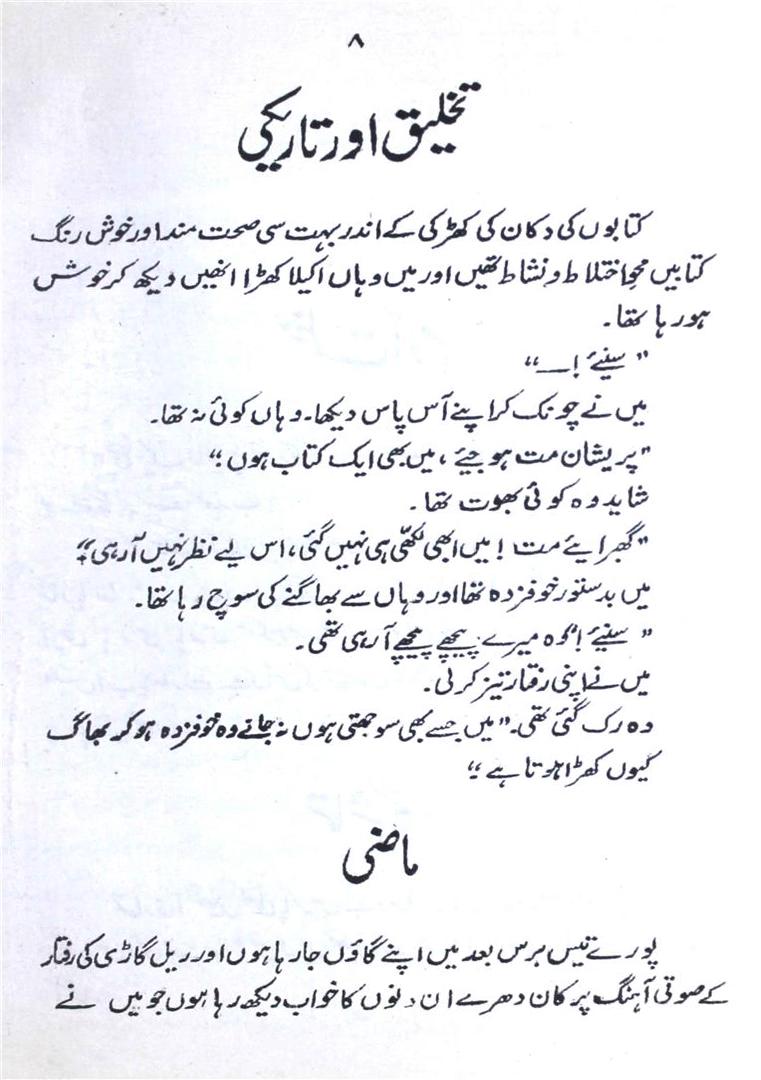 ۸
تخلیق اور تاریکی
کتابوں کی دکان کی کھڑکی کے اندر بہت سی صحت مند اور خوش رنگ
کتابیں محوِ اختلاط و نشاط تھیں اور میں وہاں اکیلا کھڑا انھیں دیکھ کر خوش
ہو رہا تھا۔
” سنیئے !ـــ “
میں نے چونک کر اپنے آس پاس دیکھا۔ وہاں کوئی نہ تھا۔
”پریشان مت ہو جیئے ، میں بھی ایک کتاب ہوں !“
شاید وہ کوئی بھوت تھا ۔
”گھبرایئے مت ! میں ابھی لکھّی ہی نہیں گئی ، اس لیے نظر نہیں آ رہی ؟“
میں بدستور خوفزدہ تھا اور وہاں سے بھاگنے کی سوچ رہا تھا۔
” سنیئے !“ وہ میرے پیچھے پیچھے آ رہی تھی۔
میں نے اپنی رفتار تیز کر لی۔
وہ رک گئی تھی۔ ” میں جسے بھی سوجھتی ہوں نہ جانے وہ خوفزدہ ہو کر بھاگ
کیوں کھڑا ہوتا ہے “
ماضی
پورے تیس برس بعد میں اپنے گاؤں جا رہا ہوں اور ریل گاڑی کی رفتار
کے صوتی آہنگ پر کان دھرے ان دنوں کا خواب دیکھ رہا ہوں جو میں نے